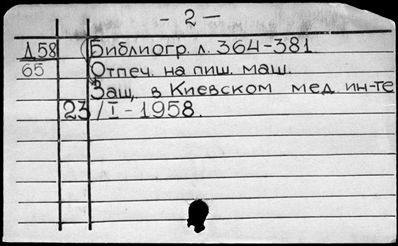 - 2 -
Д58 Библиогр. л. 364-381
65 Отпеч. на пиш. маш.
Защ. в Киевском мед. ин-те
23/I-1958.